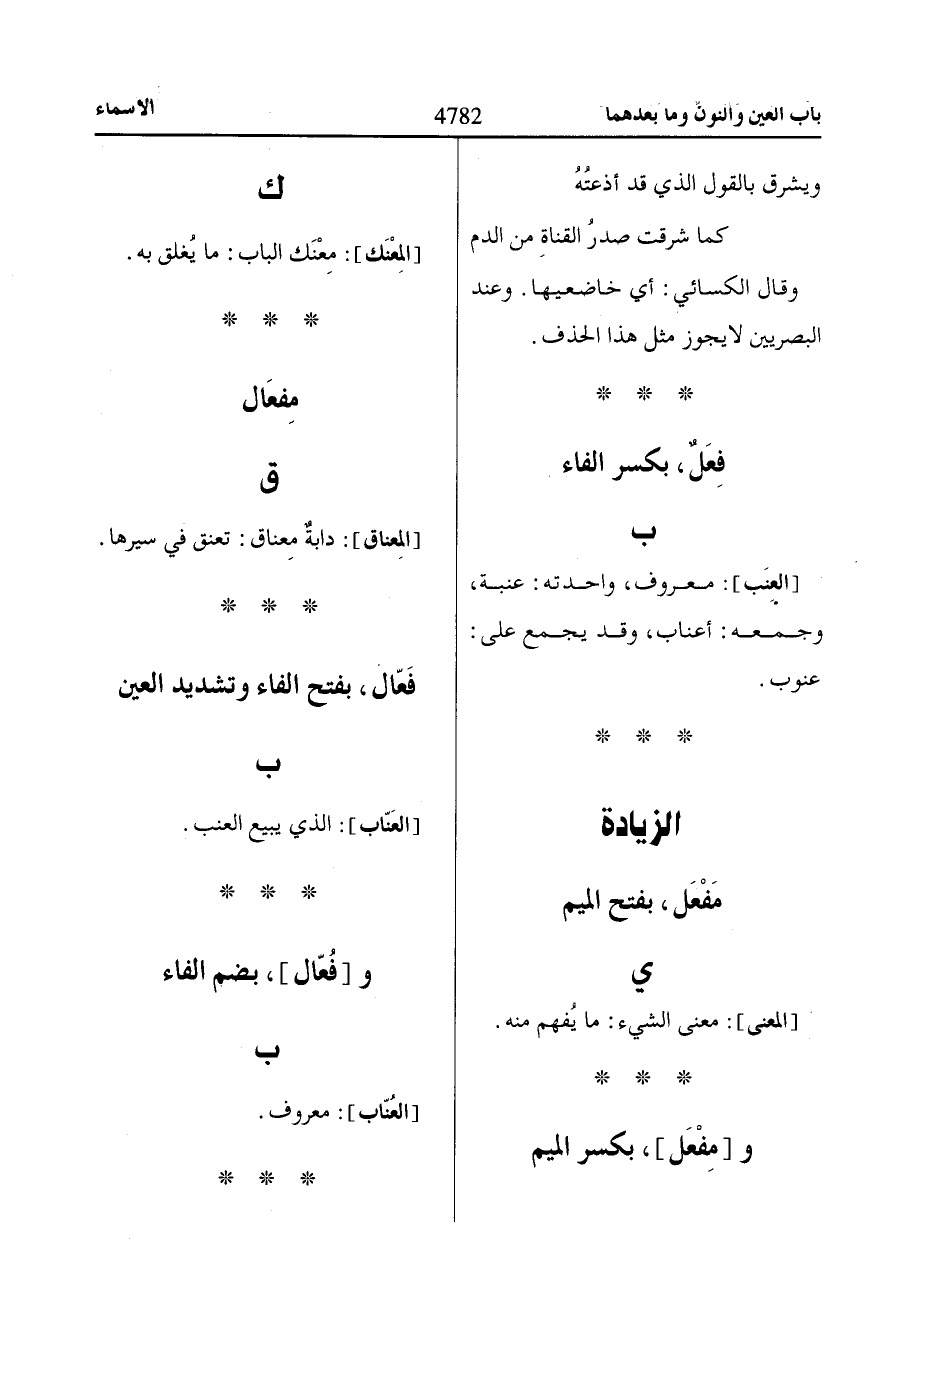 باب العين والنون وما بعدهما
4782
الاسماء
ويشرق بالقول الذي قد أذعتُهُ
كما شرقت صدرُ القناةِ من الدم
وقال الكسائي: أي خاضعيها. وعند
البصريين لايجوز مثل هذا الحذف.
* * *
فِعَلٌ، بكسر الفاء
ب
[العِنَب]: معروف، واحدته: عنبة،
وجمعه: أعناب، وقد يجمع على:
عنوب.
* * *
الزيادة
مَفْعَل، بفتح الميم
ي
[المعنى]: معنى الشيء: ما يُفهم منه.
* * *
و [مِفْعَل]، بكسر الميم
ك
[المِعْنَك]: مِعْنَك الباب: ما يُغلق به.
* * *
مِفعَال
ق
[المِعناق]: دابةٌ مِعناق: تعنق في سيرها.
* * *
فَعّال، بفتح الفاء وتشديد العين
ب
[العَنّاب]: الذي يبيع العنب.
* * *
و [فُعّال]، بضم الفاء
ب
[العُنّاب]: معروف.
* * *